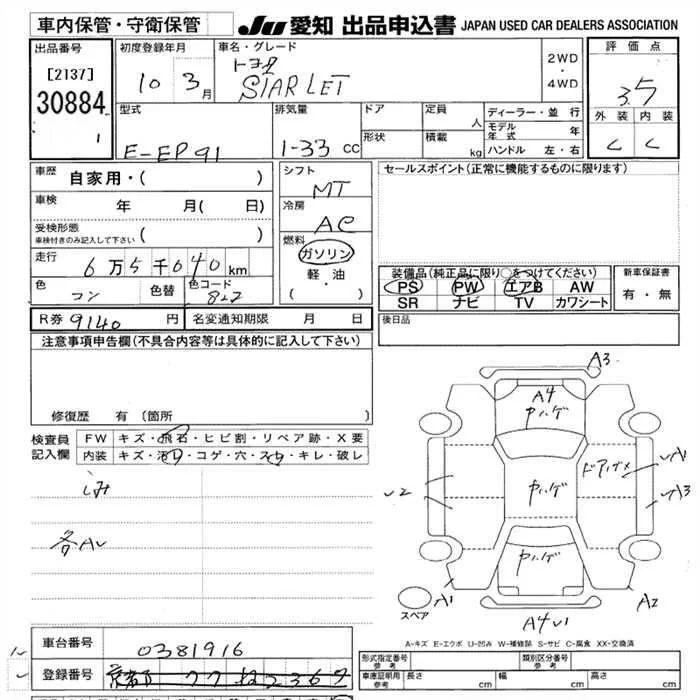 車内保管・守衛保管
JU 愛知 出品申込書 JAPAN USED CAR DEALERS ASSOCIATION
出品番号
[2137]
30884
1
初度登録年月
10 3月
車名・グレード
トヨタ
STARLET
2WD
・
4WD
評価点
3.5
外装 内装
C C
型式
E-EP91
排気量
1-33 CC
ドア
形状
定員
人
積載
kg
ディーラー・並行
モデル年式 年
ハンドル 左・右
車歴 自家用・( )
車検 年 月( 日)
受検形態
車検付きのみ記入して下さい ( )
走行 6万5千040km
色 コン 色替 色コード
シフト MT
冷房 AC
燃料
ガソリン
軽・油
( ・ )
セールスポイント(正常に機能するものに限ります)
装備品(純正品に限り○をつけてください)
PS PW エアB AW
SR ナビ TV カワシート
新車保証書
有・無
R券 9140円 名変通知期限 月 日
後日品
注意事項申告欄(不具合内容等は具体的に記入して下さい)
修復歴 有(箇所 )
検査員記入欄
FW キズ・飛石・ヒビ割・リペア跡・X要
内装 キズ・汚レ・コゲ・穴・スレ・キレ・破レ
シミ
各AU
A3
A4
ヤハゲ
ドアハゲメ
ヤハゲ
U2
A3
ヤハゲ
A1
A2
スペア
A4U1
A-キズ E-エクボ U-凹み W-補修跡 S-サビ C-腐食 XX-交換済
車台番号 0381916
登録番号 京都 77
形式指定番号
参考
類別区分番号
参考
車庫証明用
参考
長さ cm 幅 cm 高さ cm